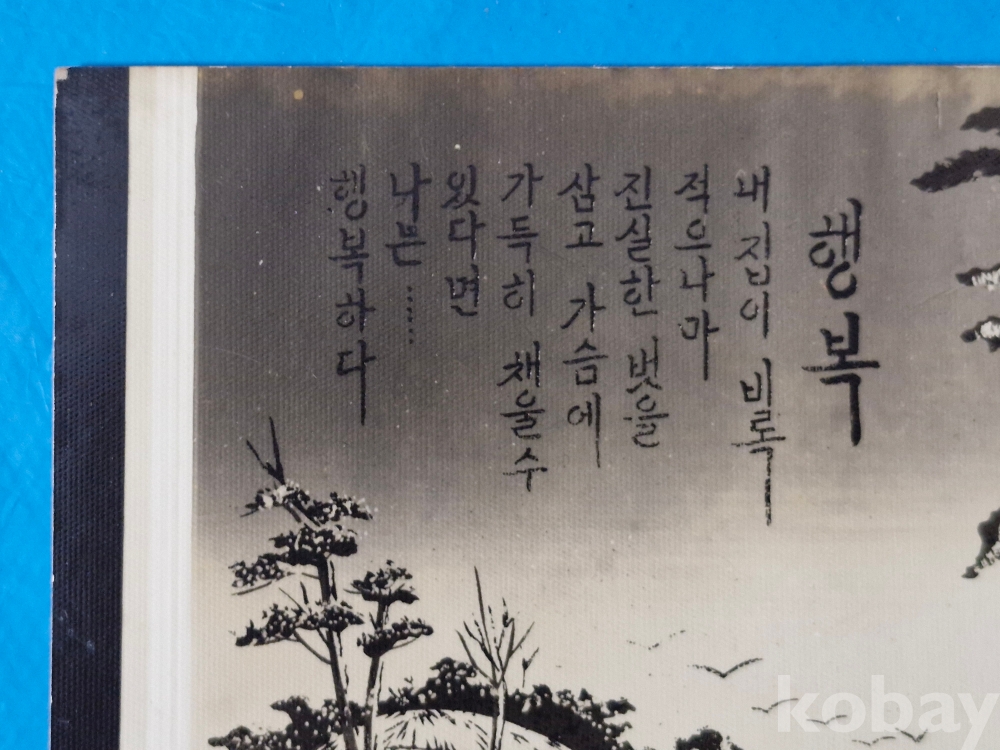 행복
내 집이 비록
적으나마
진실한 벗을
삼고 가슴에
가득히 채울 수
있다면
나는......
행복하다
kobay